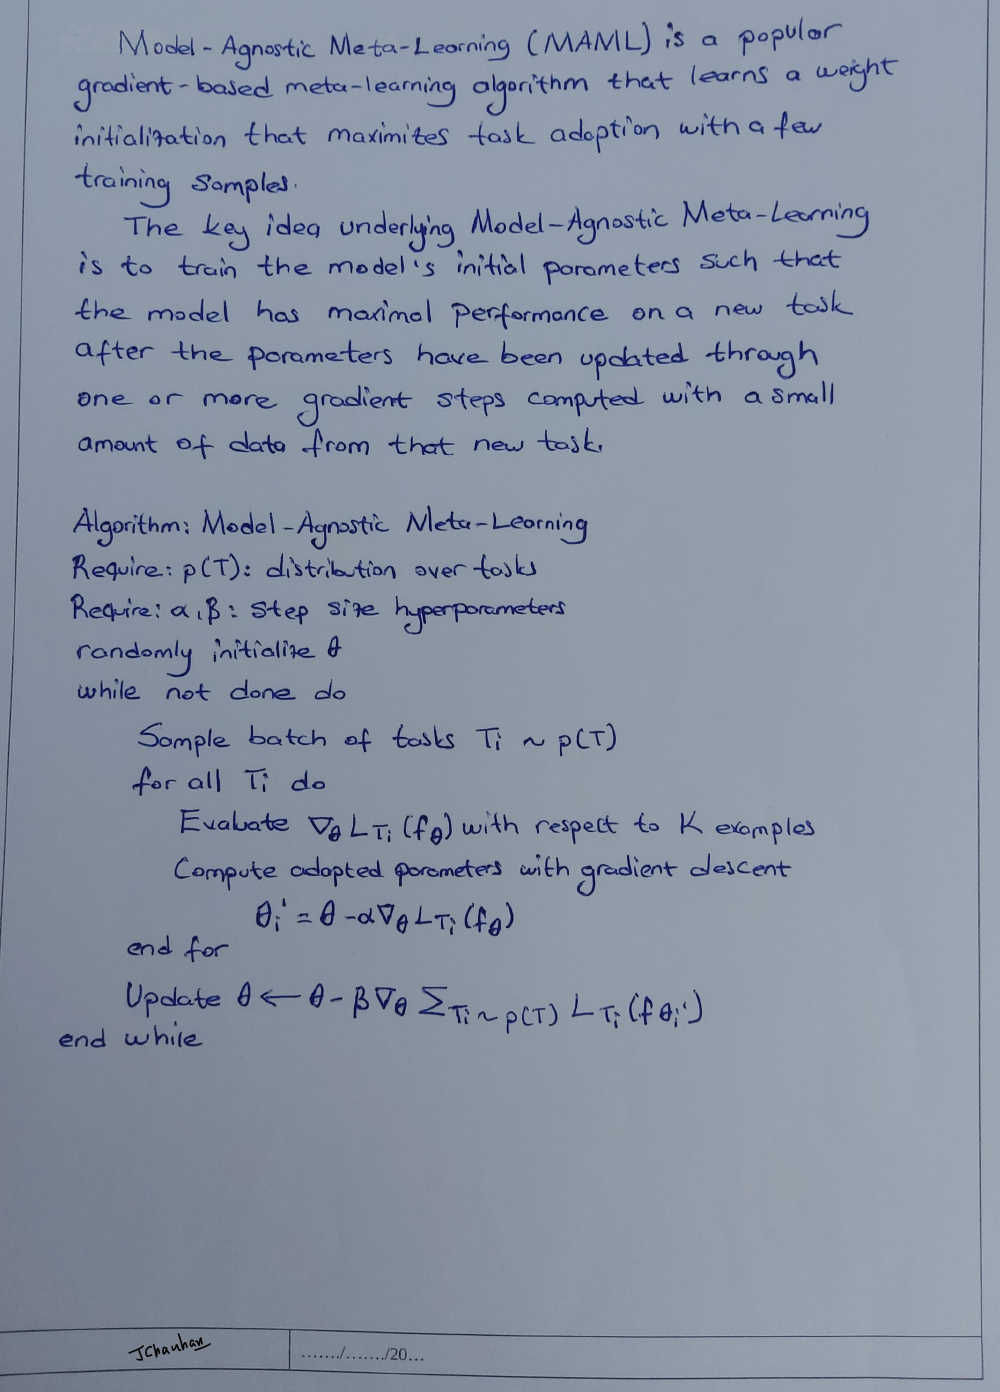 Model-Agnostic Meta-Learning (MAML) is a popular
gradient-based meta-learning algorithm that learns a weight
initialization that maximizes task adaption with a few
training samples.
The key idea underlying Model-Agnostic Meta-Learning
is to train the model's initial parameters such that
the model has maximal performance on a new task
after the parameters have been updated through
one or more gradient steps computed with a small
amount of data from that new task.
Algorithm: Model-Agnostic Meta-Learning
Require: p(T): distribution over tasks
Require: α, β: step size hyperparameters
randomly initialize θ
while not done do
Sample batch of tasks Ti ~ p(T)
for all Ti do
Evaluate ∇θ L Ti (fθ) with respect to K examples
Compute adapted parameters with gradient descent
θi' = θ - α∇θ L Ti (fθ)
end for
Update θ ← θ - β∇θ Σ Ti ~ p(T) L Ti (f θi')
end while
JChauhan
......./......./20...